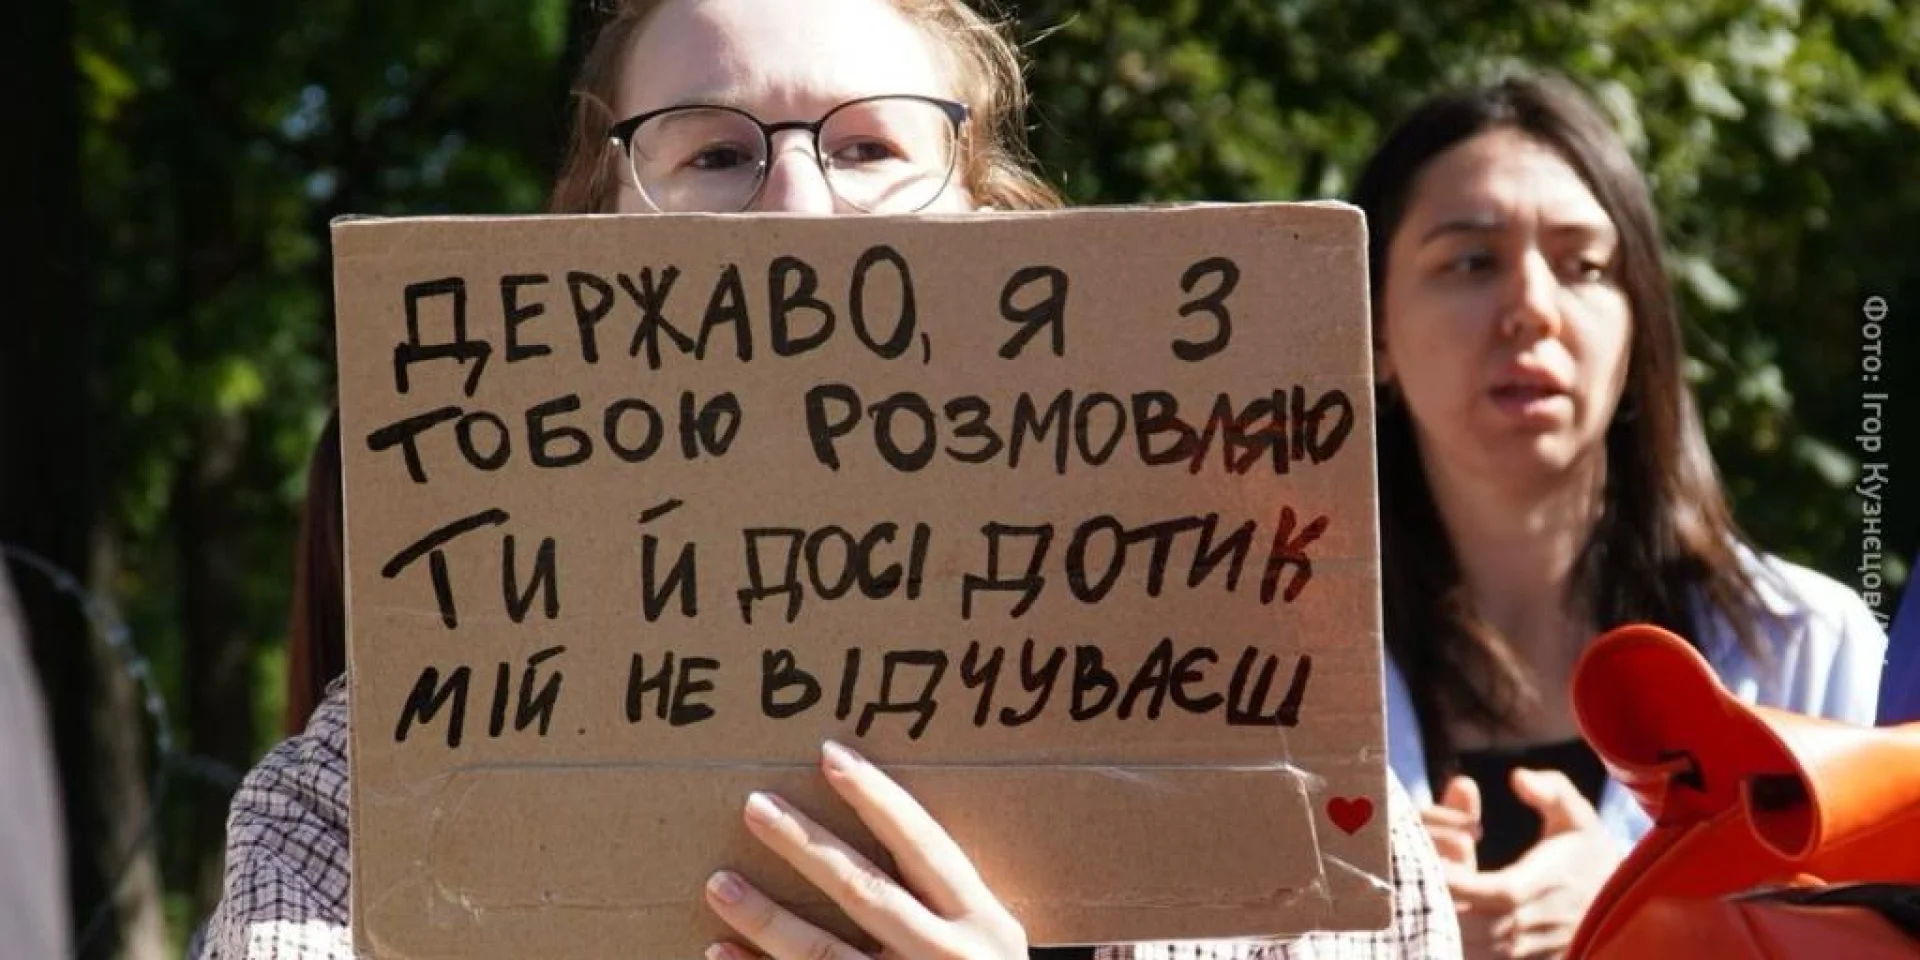 ДЕРЖАВО, Я З
ТОБОЮ РОЗМОВЛЯЮ
ТИ Й ДОСІ ДОТИК
МІЙ. НЕ ВІДЧУВАЄШ
Фото: Ігор Кузнєцов/